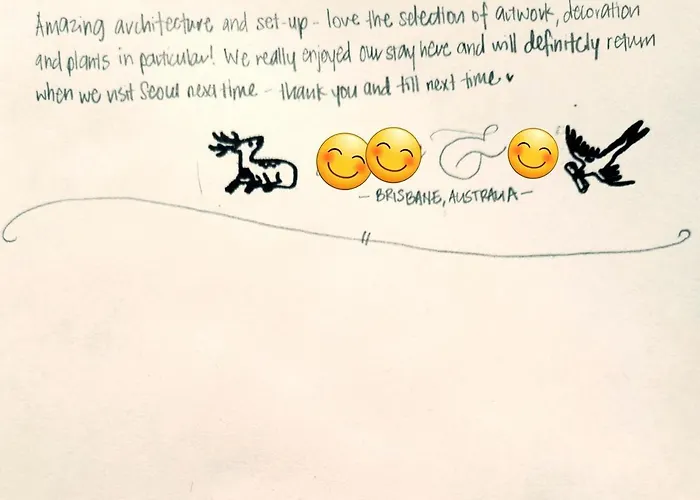 Amazing architecture and set-up - love the selection of artwork, decoration
and plants in particular! We really enjoyed our stay here and will definitely return
when we visit Seoul next time - thank you and till next time ♥
&
- BRISBANE, AUSTRALIA -